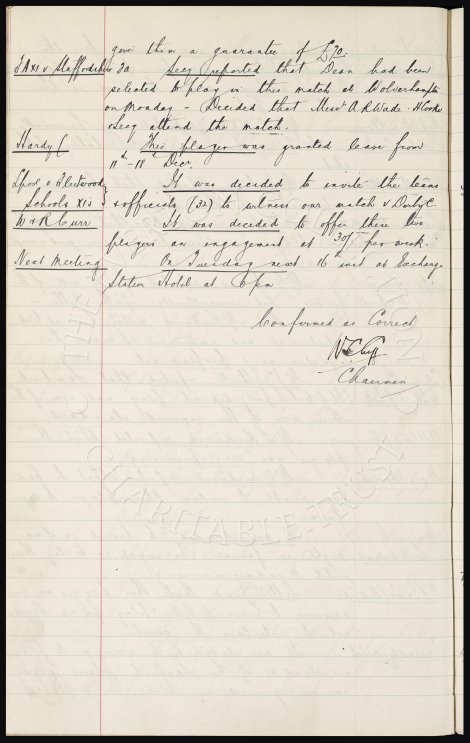 give them a guarantee of £70.
FA XI v Staffordshire 3a Secy reported that Dean had been
selected to play in this match at Wolverhampton
on Monday – Decided that Messrs A R Wade - H Cooke
& Secy attend the match.
Hardy C. This player was granted leave from
11th - 18th Decr.
Lpool v Fleetwood It was decided to invite the teams
Schools XIs & officials (32) to witness our match v Derby C.
W & R Curr It was decided to offer these two
players an engagement at 30/- per week.
Next Meeting On Tuesday next 16th inst at Exchange
Station Hotel at 6 pm
Confirmed as Correct
Chairman
CHARITABLE TRUST